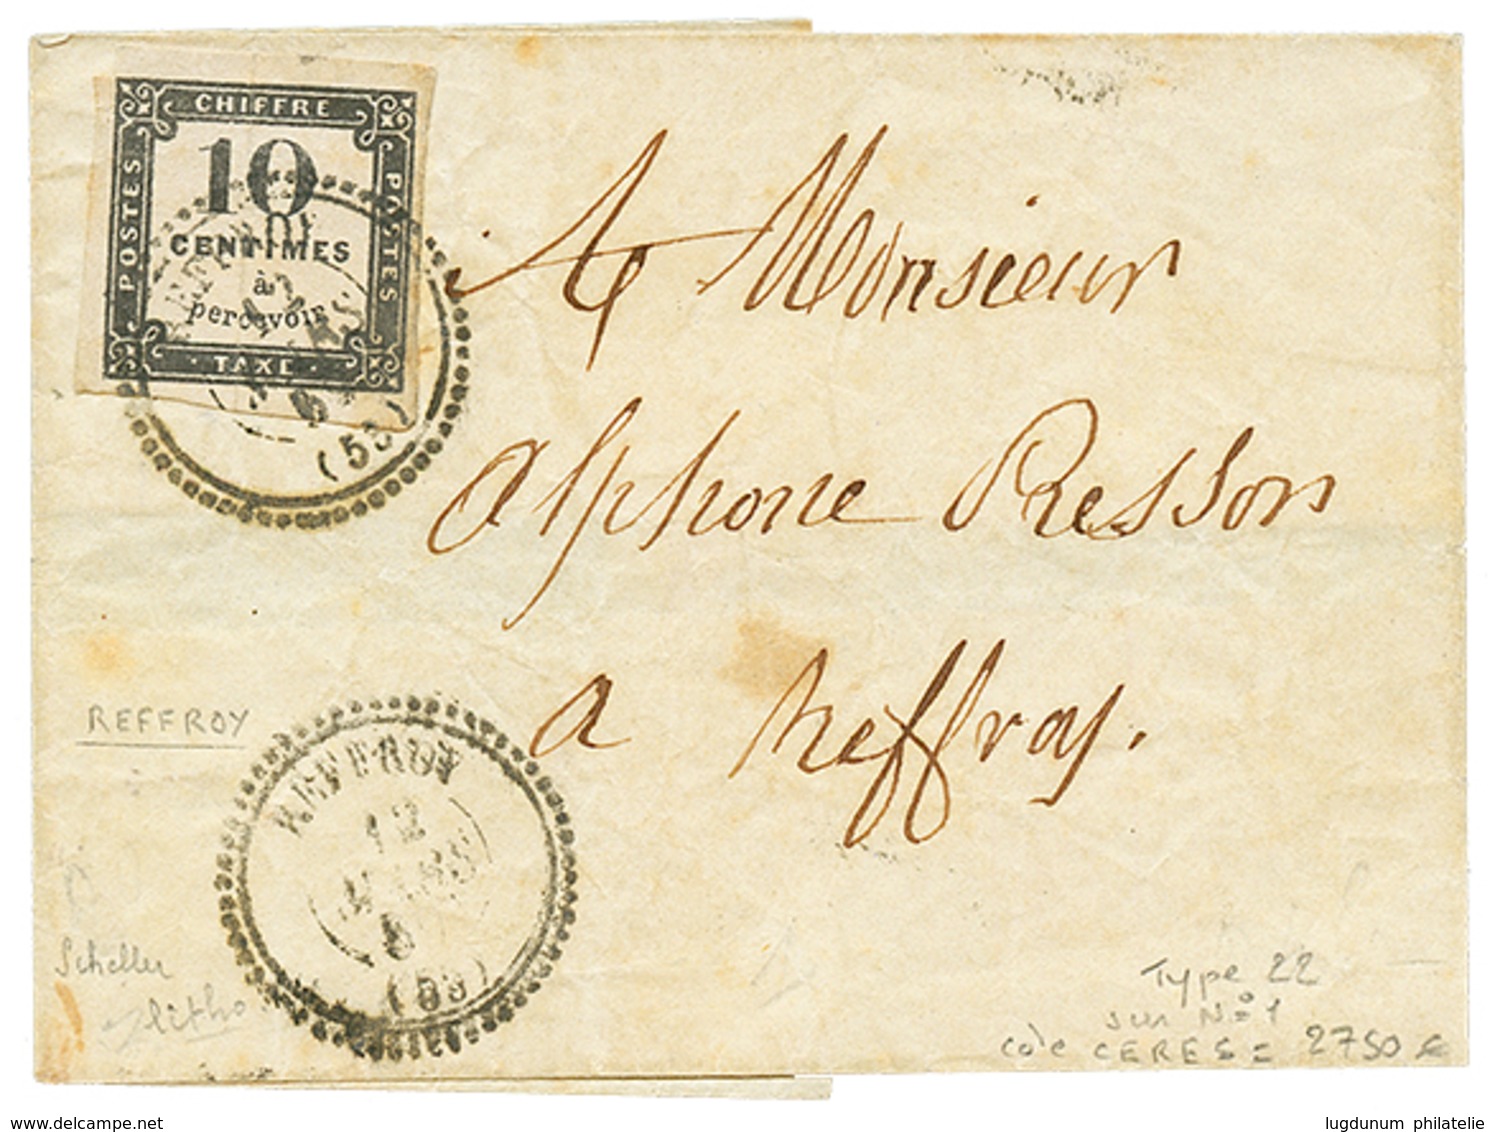 CHIFFRE
POSTES
10
CENTIMES
à
percevoir
POSTES
TAXE
(53)
A Monsieur
Alphone Resson
a Reffroy.
REFFROY
REFFROY
12
MARS
(53)
Scheller
litho
Type 22
sur No 1
cote CERES = 2750 €
www.delcampe.net
lugdunum philatelie